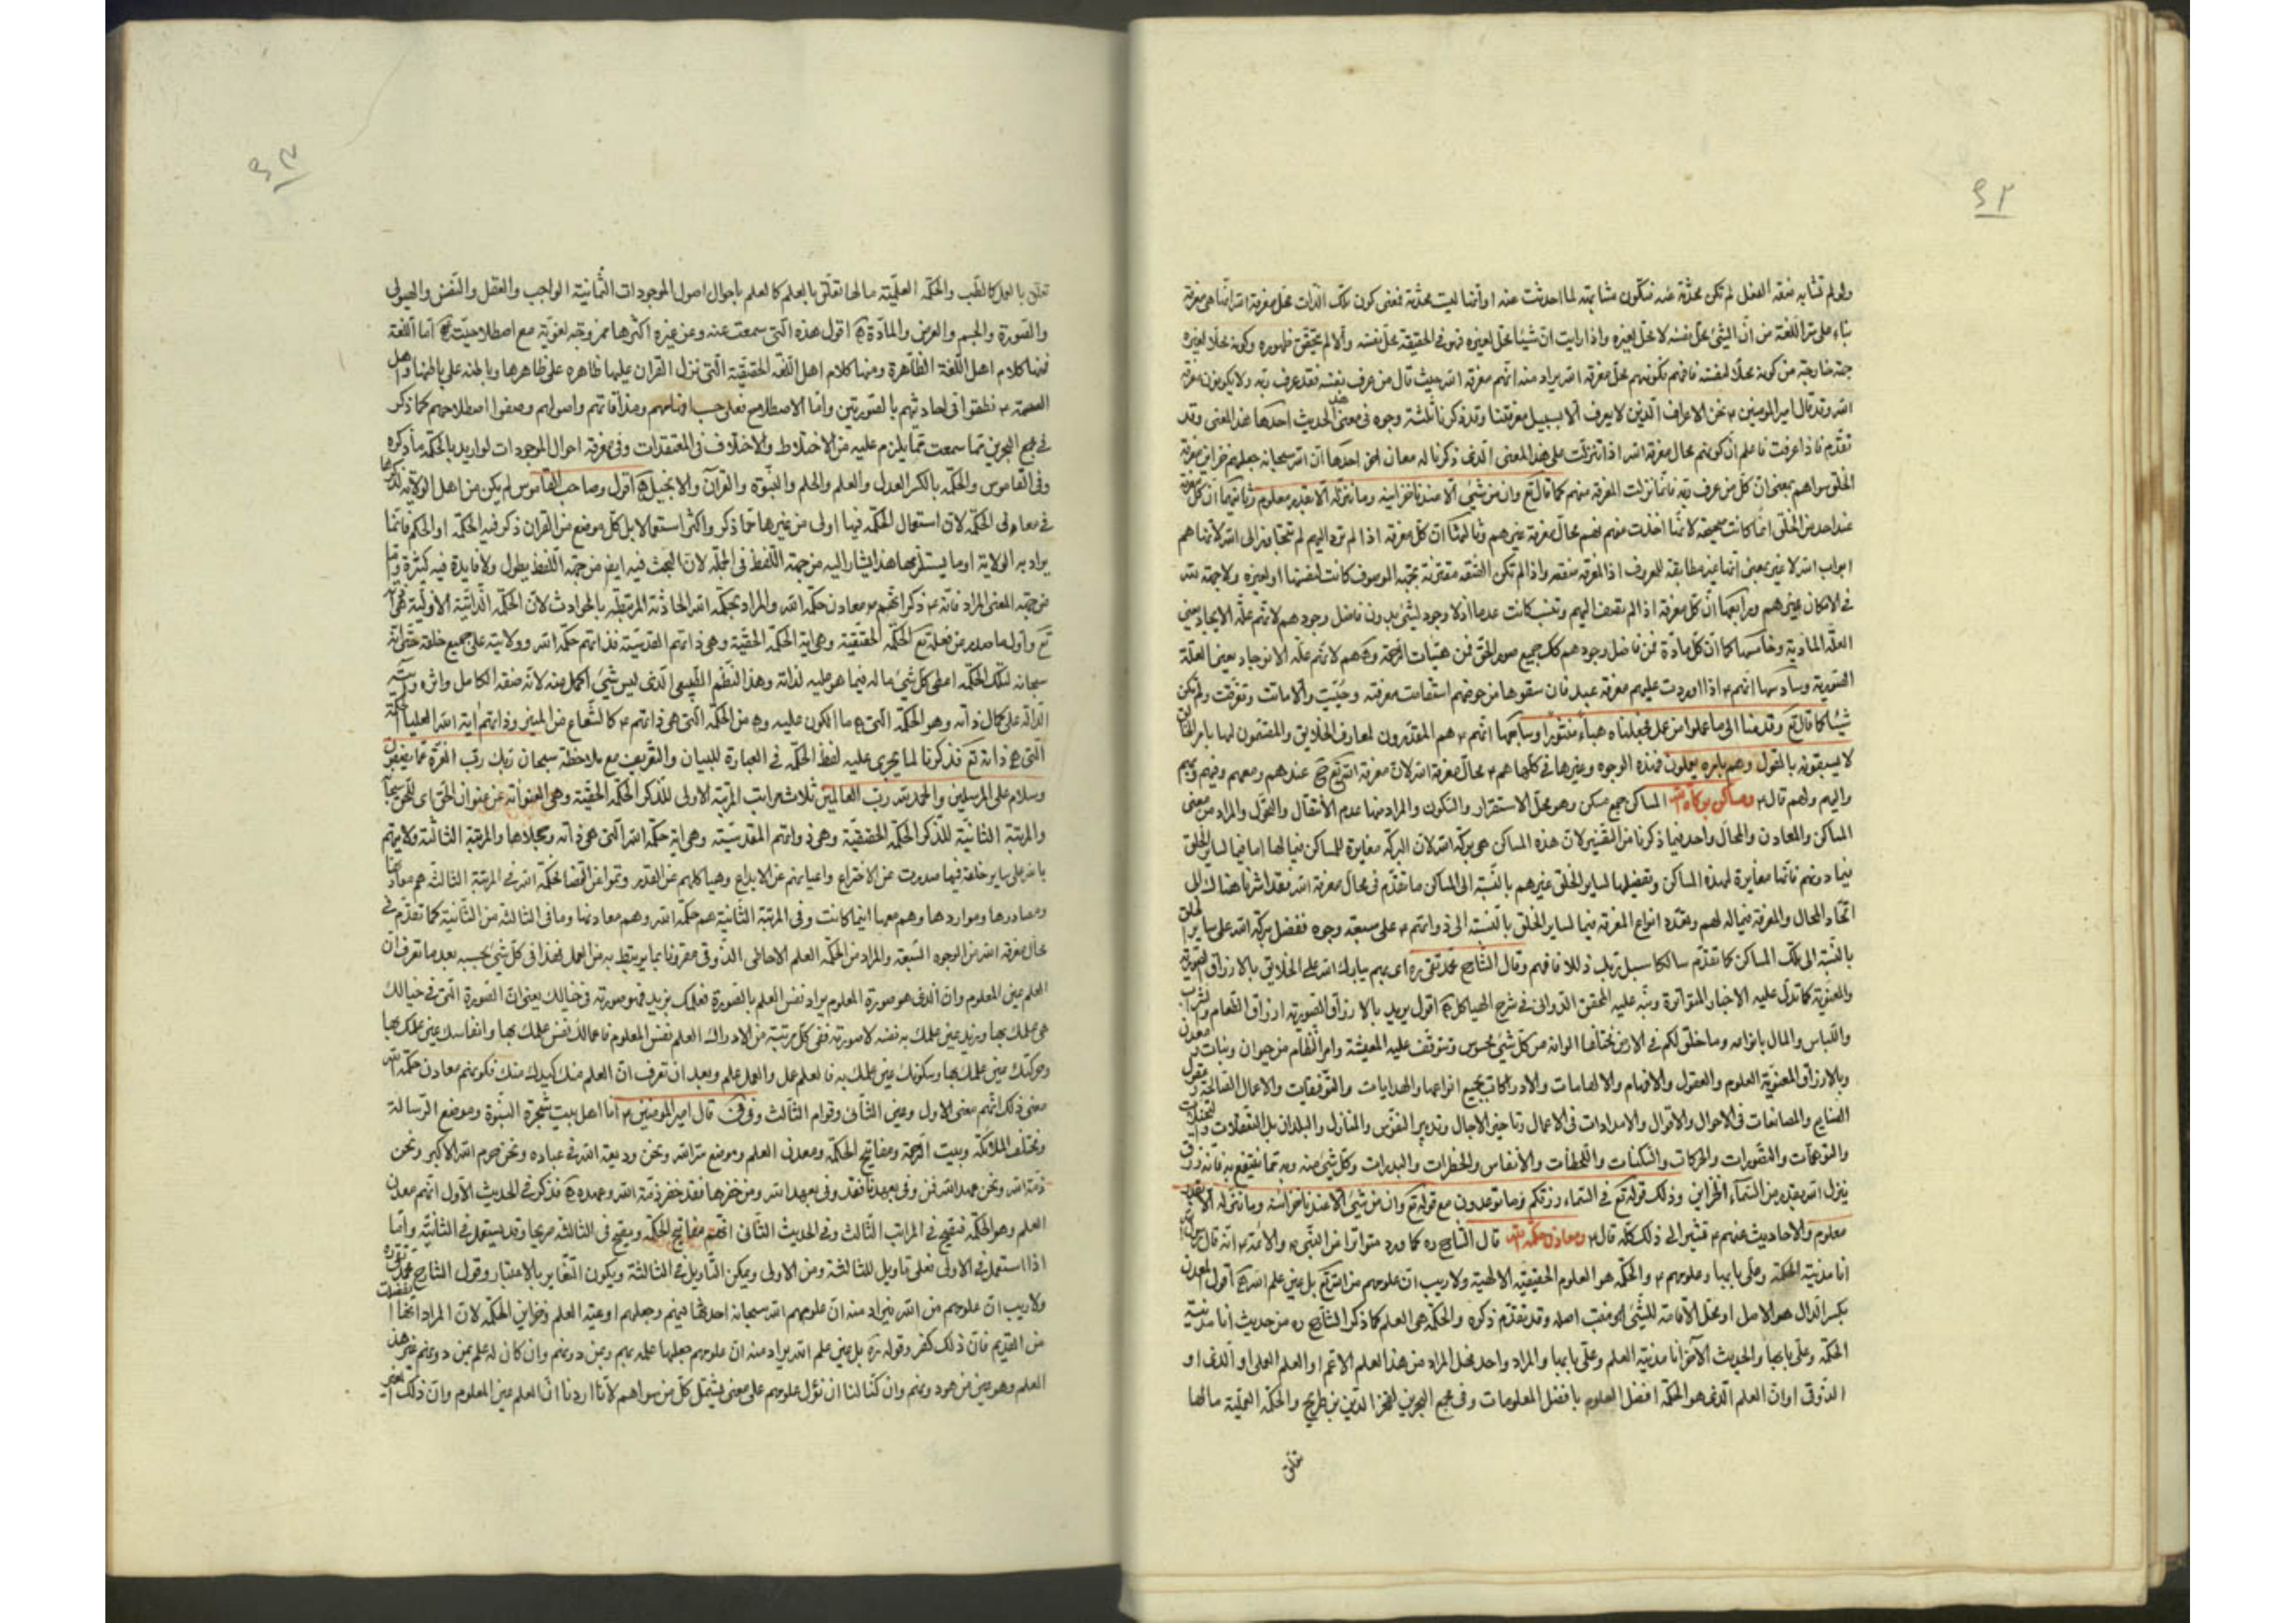 ٤٢
ولو لم تشابه صفة الفعل لم تكن محدثة عنه فتكون مشابهة لما احدثت عنه او أنها ليست محدثة فمعنى كون تلك الذات محل معرفة الله انها هي معرفة
بناء على اللغة من انّ الشئ محل نفسه لا محل لغيره واذا رايت انّ شيئا محل لغيره فهو في الحقيقة محل نفسه والا لم يتحقق ظهوره وكونه محلا لغيره
جهة خارجة من كونه محلا لنفسه فافهم فكونهم محل معرفة الله يراد منه انهم معرفة الله حيث قال من عرف نفسه فقد عرف ربه ولا يكونون معرفة
الله وقد قال امير المؤمنين ع نحن الاعراف الذين لا يعرف الله الا بسبيل معرفتنا وقد ذكرنا ثلثة وجوه في معنى هذا الحديث احدها هذا المعنى وقد
تقدّم فاذا عرفت فاعلم انّ كونهم محال معرفة الله اذا تنزلت على هذا المعنى الذى ذكرنا له معان اخر احدها انّ الله سبحانه جعلهم خزاين معرفة
الخلق سواهم بمعنى انّ كل من عرف ربه فانما نزلت المعرفة منهم كما قال تع وان من شئ الا عندنا خزاينه وما ننزله الا بقدر معلوم وثانيها انّ كل معرفة
عند احد من الخلق انما كانت صحيحة لانها اخذت منهم فهم محال معرفة غيرهم وثالثها انّ كل معرفة اذا لم ترد اليهم لم تتجاوز الى الله لانها هم
ابواب الله لا غير بمعنى انها غير مطابقة للمعروف اذ المعرفة صفة واذا لم تكن الصفة مقترنة بجهة الموصوف كانت لنفسها او لغيره ولا جهة لله
في الامكان غيرهم ورابعها انّ كل معرفة اذا لم تضف اليهم وتنسب كانت عدما اذ لا وجود لشئ بدون فاضل وجودهم لانهم علّة الايجاد يعنى
العلّة المادية وخامسها كما انّ كل مادة من فاضل وجودهم كك جميع صور الحق من هيئات الرحمة وهم لانهم علّة الانوجاد يعنى العلّة
الصورية وسادسها انهم ع اذا اوردت عليهم معرفة عبد فان سقوها من حوضهم استقامت معرفته وحُيّيَت والا ماتت وتفرقت ولم تكن
شيئا كما قال تع وقدمنا الى ما عملوا من عمل فجعلناه هباءً منثورا وسابعها انهم ع هم المقدّرون لمعارف الخلايق والمقتضون لها بامر الله
لا يسبقونه بالقول وهم بامره يعملون فهذه الوجوه وغيرها في كلها هم ع محال معرفة الله لانّ معرفة الله تع عندهم ومعهم وفيهم وبهم
واليهم ولهم قال ع ومساكن بركة الله المساكن جمع مسكن وهو محل الاستقرار والسكون والمراد منها عدم الانتقال والتحول والمراد من معنى
المساكن والمعادن والمحال واحد فيما ذكرنا من التفسير لانّ هذه المساكن هي بركة الله لانّ البركة مغايرة للمساكن فيما لها اما فيما لساير الخلق
فيما دونهم فانها مغايرة لهذه المساكن وتفضيلها لساير الخلق غيرهم بالنسبة الى المساكن ما تقدّم في محال معرفة الله فقد اشرنا هنالك الى
اتحاد المحال والمعرفة فيما له لهم وتعدد انواع المعرفة فيما لساير الخلق بالنسبة الى ذواتهم ع على سبعة وجوه ففضل بركة الله على ساير الخلق
بالنسبة الى تلك المساكن كما تقدّم سالكا سبل ربك ذللا فافهم وقال الشارح محمد تقى ره اى بهم يبارك الله على الخلايق بالارزاق الصورية
والمعنوية كما تدلّ عليه الاخبار المتواترة ونبّه عليه المحقق الدوانى في شرح الهياكل اقول يريد بالارزاق الصورية ارزاق الطعام والشراب
واللباس والمال بانواعه وما خلق لكم في الارض مختلفا الوانه من كل شئ محسوس وتتوقف عليه المعيشة وامر النظام من حيوان ونبات ومعدن
وبالارزاق المعنوية العلوم والعقول والافهام والالهامات والادراكات بجميع انواعها والهدايات والتوفيقات والاعمال الصالحة
الصنايع والمصانعات في الاحوال والاقوال والامدادات في الاعمال وتاخير الاجال وتدبير النفوس والمنازل والبلدان بل التعقلات والتخيلات
والتوهمات والتصورات والحركات والسكنات واللحظات والانفاس والخطرات والبدرات وكل شئ منه وبه مما ينتفع به فانه رزق
ينزل الله بقدر من السماء الخزاين وذلك قوله تع في السماء رزقكم وما توعدون مع قوله تع وان من شئ الا عندنا خزائنه وما ننزله الا بقدر
معلوم والاحاديث عنهم ع تشير الى ذلك كله قال ع ومعادن حكمة الله قال الشارح ره كما ورد متواترا من النبى ص والائمة ع انه قال
انا مدينة الحكمة وعلى بابها وعلومهم ع والحكمة هو العلوم الحقيقية الالهية ولا ريب انّ علومهم من الله تع بل عين علم الله اقول المعدن
بكسر الدال هو الاصل او محل الاقامة للشئ او منبت اصله وقد تقدّم ذكره والحكمة هي العلم كما ذكر الشارح ره من حديث انا مدينة
الحكمة وعلى بابها والحديث الآخر انا مدينة العلم وعلىّ بابها والمراد واحد فهل المراد من هذا العلم الاعم او العلم العملى او الذى او
الذوقى او انّ العلم الذى هو الحكمة افضل العلوم بافضل المعلومات وفى مجمع البحرين لفخر الدين بن طريح والحكمة العملية ما لها
تعلق
٤٣
تعلق بالعمل كالطب والحكمة العلميّة ما لها تعلّق بالعلم كالعلم باحوال اصول الموجودات الثمانية الواجب والعقل والنفس والهيولى
والصورة والجسم والعرض والمادّة اقول هذه التى سمعت عنه وعن غيره اكثرها ممزوجة لغوية مع اصطلاحيّة امّا اللغة
فمنها كلام اهل اللغة الظاهرة ومنها كلام اهل اللغة الحقيقية التى نزل القران عليها ظاهره على ظاهرها وباطنه على باطنها واهل
العصمة ع نطقوا فى احاديثهم بالصورتين وامّا الاصطلاح فعلى حسب افهامهم ومذاقاتهم واصولهم وصفوا اصطلاحهم كما ذكر
في مجمع البحرين مما سمعت مما يلزم عليه من الاختلاط والاختلاف في المعتقدات وفى معرفة احوال الموجودات لو اريد بالحكمة ما ذكره
وفى القاموس والحكمة بالكسر العدل والعلم والحلم والنبوّة والقرآن والانجيل اقول وصاحب القاموس لم يكن من اهل الولاية ليذكرها
في معانى الحكمة لانّ استعمال الحكمة فيها اولى من غيرها مما ذكر واكثر استعمالا بل كل موضع من القران ذكر فيه الحكمة او الحكم فانّما
يراد به الولاية او ما يستلزمها هذا يشار اليه من جهة اللفظ فى الجملة لانّ البحث فيه ايضر من جهة اللفظ يطول ولا فايدة فيه كثيرة وامّا
من جهة المعنى المراد فانّه ع ذكر انّهم ع معادن حكمة الله والمراد بحكمة الله الحادثة المرتبطة بالحوادث لانّ الحكمة الذاتيّة الاوليّة هي الله
تع واول ما صدر من فعله تع الحكمة الحقيقية وهي اية الحكمة الحقيّة وهي ذاتهم القدسيّة فذاتهم حكمة الله وولايته على جميع خلقه حتى انّه
سبحانه بتلك الحكمة اعطى كل شئ ما له فيما هو عليه لذاته وهذا النظم الطبيعى الذى ليس شئ اكمل منه لانّه صفة الكامل واثره
الدالّة على كمال ذاته وهو الحكمة التى ما الكون عليه من الحكمة التى هي ذاتهم ع كالشعاع من المنير وذاتهم اية الله العليا
التى هي ذاته تع فذكرنا لما يجرى عليه لفظ الحكمة في العبارة للبيان والتعريف مع ملاحظة سبحان ربك رب العزة عمّا يصفون
وسلام على المرسلين والحمد لله ربّ العالمين ثلاث مراتب المرتبة الاولى للذكر الحكمة الحقيّة وهي العنوانه من عنوان الحق
والمرتبة الثانية للذكر الحكمة الحقيقية وهي ذواتهم المقدسيّة وهي اية حكمة الله التى هي ذاته ومحلّها والمرتبة الثالثة ولايتهم
بالله على ساير خلقه فيها صدرت عن الاختراع واعيانهم عن الابداع وهياكلهم عن القدر وتمّوا عن القضا فحكمة الله في المرتبة الثالثة هم معادنها
ومصادرها ومواردها وهم معها اينما كانت وفى المرتبة الثانية هم حكمة الله وهم معادنها وما فى الثالثة من الثانية كما تقدّم في
محال معرفة الله من الوجوه السبعة والمراد من الحكمة العلم الاحاطى الذوقى مقرونا بما يرتبط به من العمل فهذا فى كل شئ بحسبه بعد ما تعرف انّ
العلم عين المعلوم وانّ الذى هو صورة المعلوم يراد نفس العلم بالصورة فعلمك بزيد فهو صورته في خيالك يعنى انّ الصورة التى في خيالك
هي علمك بها وبزيد عين علمك به نفسه لا صورته ففى كل مرتبة من الادراك العلم نفس المعلوم فاعمالك نفس علمك بها وانفاسك عين علمك بها
وحركتك عين علمك بها وسكونك عين علمك به فالعلم عمل والعمل علم وبعد ان تعرف انّ العلم منك كيدك منك فكونهم معادن حكمة الله
معنى ذلك انّهم معنى الاول وعين الثانى وقوام الثالث وفى فى قال امير المؤمنين ع انا اهل بيت شجرة النبوّة وموضع الرسالة
ومختلف الملائكة وبيت الرحمة ومفاتيح الحكمة ومعدن العلم وموضع سرّ الله ونحن وديعة الله في عباده ونحن حرم الله الاكبر ونحن
ذمّة الله ونحن عهد الله فمن وفى بعهدنا فقد وفى بعهد الله ومن خفرها فقد خفر ذمّة الله وعهده فذكر في الحديث الاول انهم معدن
العلم وهو الحكمة فيقع في المراتب الثالث وفى الحديث الثانى انّهم مفاتيح الحكمة ويقع فى الثالثة صريحا وقد يستعمل في الثانية وامّا
اذا استعمل في الاولى فعلى تاويل للثالثة ومن الاولى ويمكن التاويل في الثالثة ويكون التغاير بالاعتبار وقول الشارح محمد تقى ره
ولا ريب انّ علومهم من الله فيراد منه انّ علومهم الله سبحانه احدثها فيهم وجعلهم اوعية العلم وخزاين الحكمة لانّ المراد انّها
من القديم فانّ ذلك كفر وقوله ره بل عين علم الله يراد منه انّ علومهم جعلها علمه بهم وبمن دونهم وان كان له علم بمن دونهم غير هذا
العلم وهو عين من هو دونهم وان كنّا لنا ان نؤل علومهم على معنى يشتمل كل من سواهم لانّا اردنا انّ العلم عين المعلوم وانّ ذلك